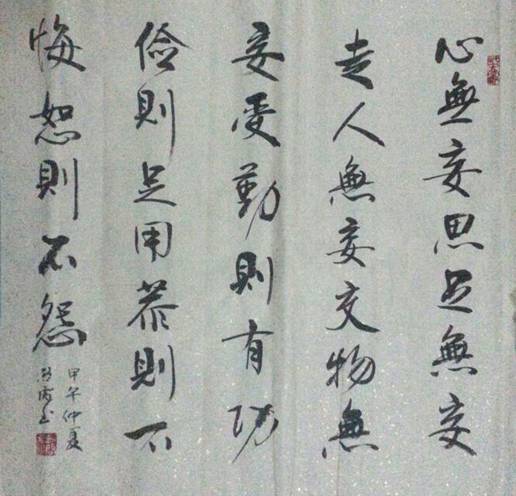 心無妄思足無妄
走人無妄交物無
妄受勤則有功
俭則足用恭則不
悔恕則不怨
甲午仲夏
书